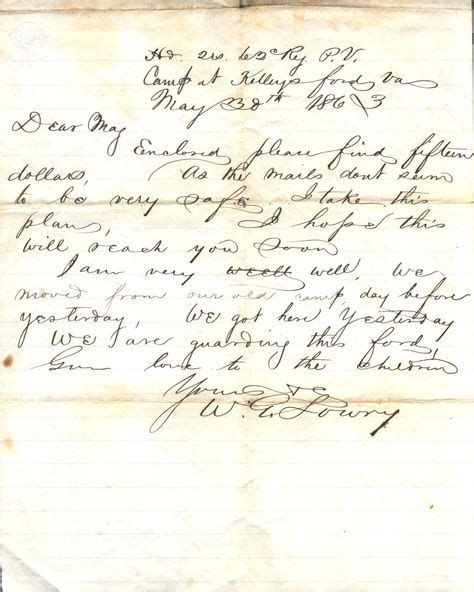 Hd. Qrs. 62d Reg P.V.
Camp at Kellys ford Va
May 30th 1863
Dear Mag
Enclosed please find fifteen
dollars, As the mails dont seem
to be very safe I take this
plan, I hope this
will reach you soon
I am very well well. We
moved from our old camp day before
yesterday, We got here Yesterday
We are guarding this ford,
Give love to the children
Yours &c
W. C. Lowry